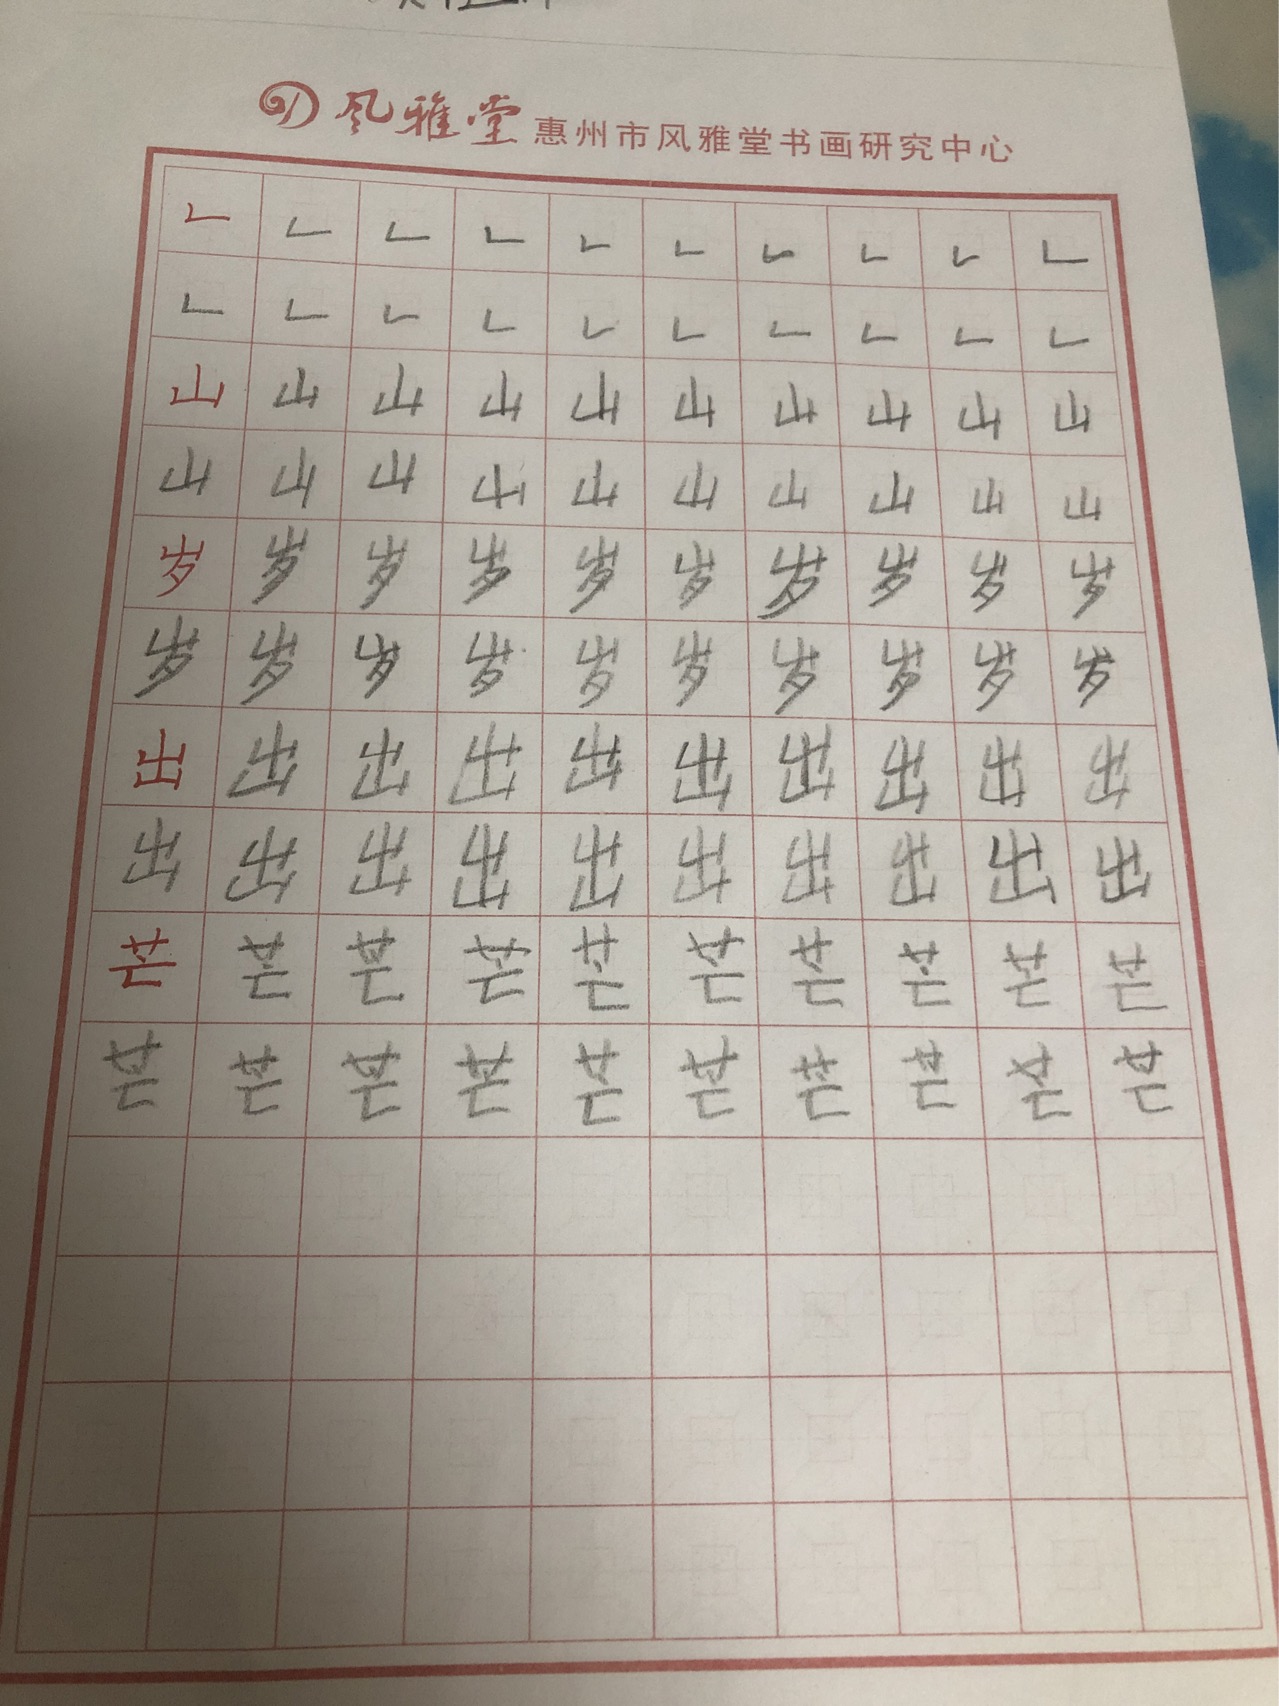 风雅堂 惠州市风雅堂书画研究中心
𠃊 𠃊 𠃊 𠃊 𠃊 𠃊 𠃊 𠃊 𠃊 𠃊
𠃊 𠃊 𠃊 𠃊 𠃊 𠃊 𠃊 𠃊 𠃊 𠃊
山 山 山 山 山 山 山 山 山 山
山 山 山 山 山 山 山 山 山 山
岁 岁 岁 岁 岁 岁 岁 岁 岁 岁
岁 岁 岁 岁 岁 岁 岁 岁 岁 岁
出 出 出 出 出 出 出 出 出 出
出 出 出 出 出 出 出 出 出 出
芒 芒 芒 芒 芒 芒 芒 芒 芒 芒
芒 芒 芒 芒 芒 芒 芒 芒 芒 芒